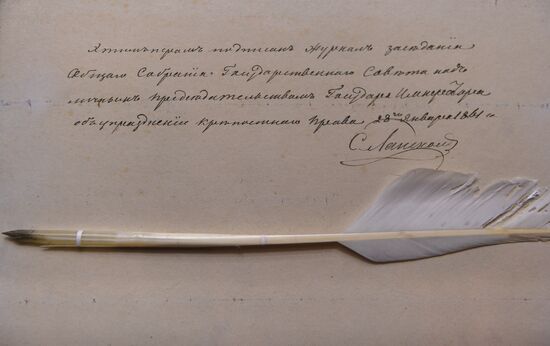 Этимъ перомъ подписанъ журналъ заседанiя
Общаго Собранiя Государственнаго Совета подъ
личнымъ председательствомъ Государя Императора
объ упраздненiи крепостнаго права 28го Января 1861 г.
С. Ланской